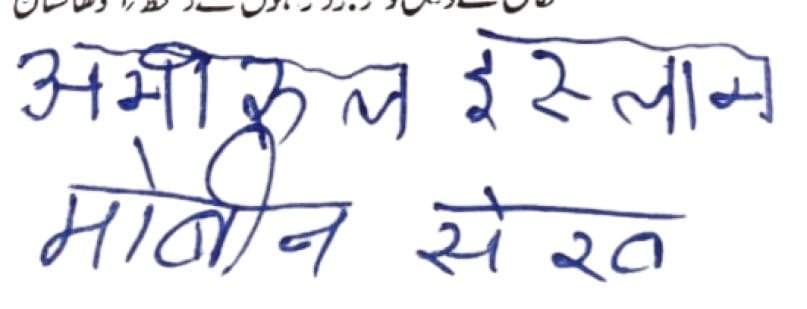 अमीरुल इस्लाम
मोबीन सेख